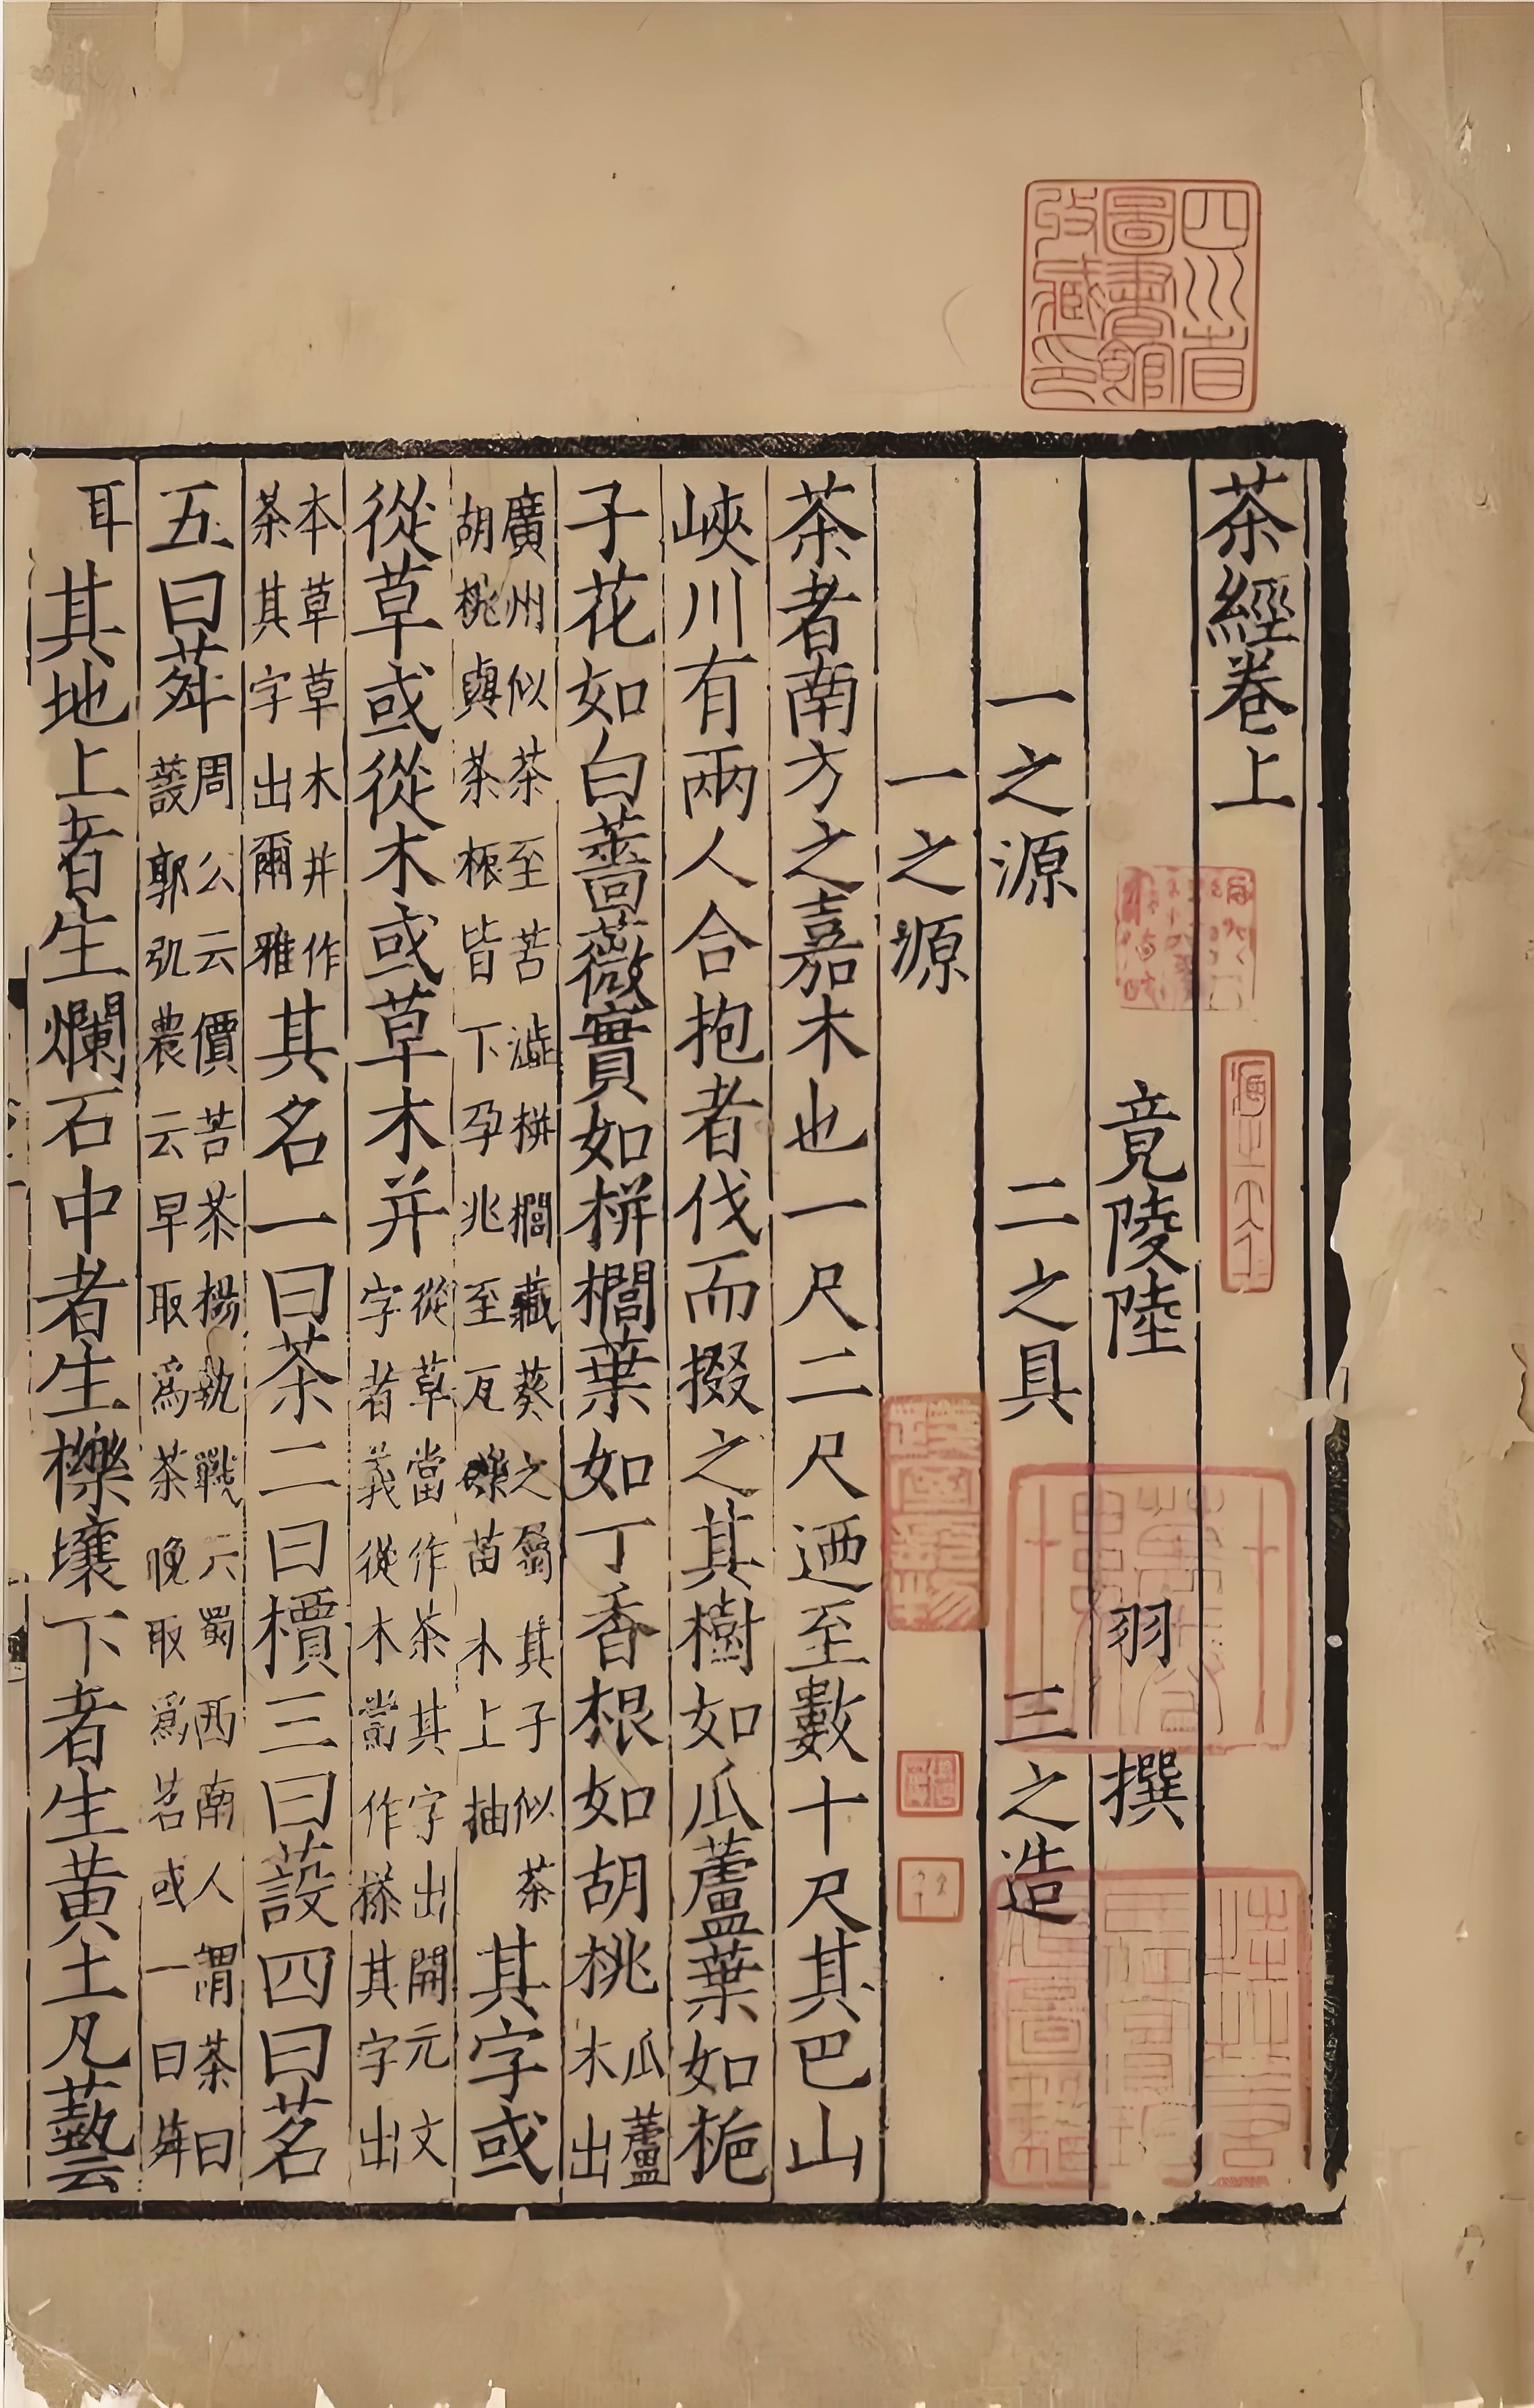 四川省圖書館收藏印
茶經卷上
竟陵陸 羽 撰
一之源 二之具 三之造
一之源
茶者南方之嘉木也一尺二尺迺至數十尺其巴山
峽川有兩人合抱者伐而掇之其樹如瓜蘆葉如梔
子花如白薔薇實如栟櫚葉如丁香根如胡桃瓜蘆木出
廣州似茶至苦澁栟櫚藏葵之屬其子似茶胡桃與茶根皆下孕兆至瓦礫苗木上抽其字或
從草或從木或草木并從草當作茶其字出開元文字者義從木當作搽其字出
本草草木并作茶其字出爾雅其名一曰茶二曰檟三曰蔎四曰茗
五曰荈周公云價苦茶楊執戟云蜀西南人謂茶曰蔎郭弘農云早取爲茶晚取爲茗或一曰荈
耳其地上者生爛石中者生櫟壤下者生黃土凡藝